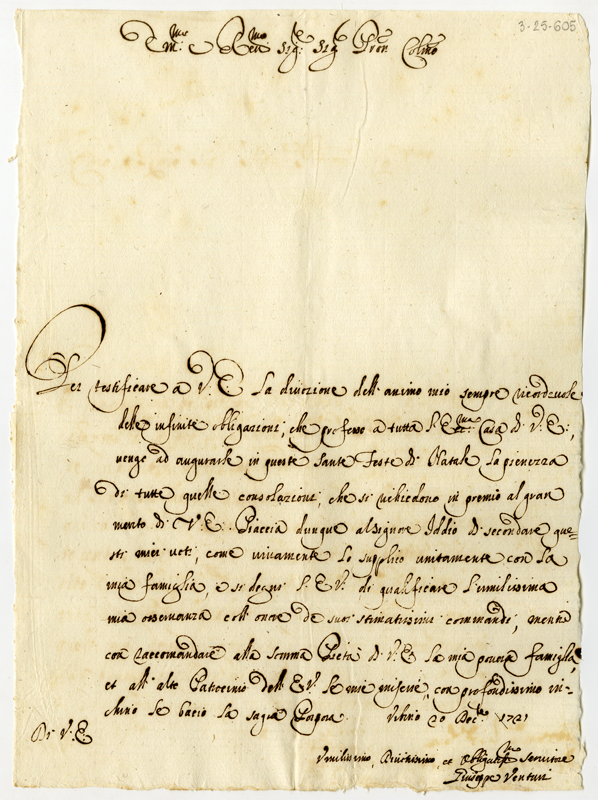 3-25-605
Em.mo e Rev.mo Sig.re Sig.r Pron Colmo
Per testificare a V. E. la divozione dell'animo mio sempre ricordevole
delle infinite obligazioni, che professo a tutta l'E.ma Casa di V. E.,
vengo ad augurarle in queste Sante Feste di Natale la pienezza
di tutte quelle consolazioni, che si richiedono in premio al gran
merito di V. E. Piaccia dunque al Signore Iddio di secondare que=
sti miei voti, come vivamente lo supplico unitamente con la
mia famiglia, e si degni l'E. V. di qualificare l'umilissima
mia osservanza coll'onore de suoi stimatissimi commandi, mentre
con raccomandare alla somma Pietà di V. E. la mia povera famiglia,
et all'alto Patrocinio dell'E. V. le mie miserie, con profondissimo in=
chino le bacio la sagra Porpora. Urbino 20 Dec.bre 1721
Di V. E.
Umilissimo, Divotissimo, et Obligatis.mo Servitore
Giuseppe Venturi